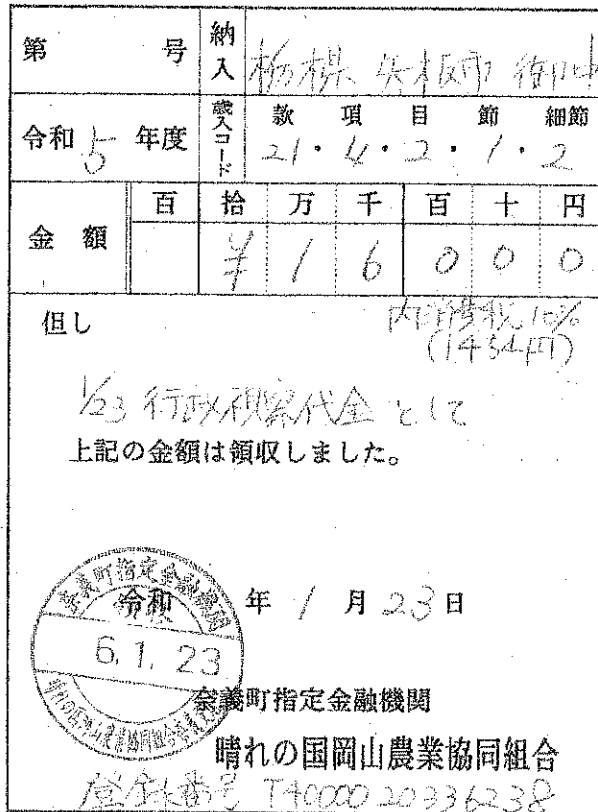 第 号 納入 栃木県 矢板市 御中
令和 5 年度 歳入コード 款 項 目 節 細節
21・4・2・1・2
金額 百 拾 万 千 百 十 円
¥ 1 6 0 0 0
但し 内消費税10%
(1454円)
1/23 行政視察代金 として
上記の金額は領収しました。
奈義町指定金融機関
令和 年 1 月 23 日
6. 1. 23
奈義町指定金融機関
晴れの国岡山農業協同組合
登録番号 T4000020336238